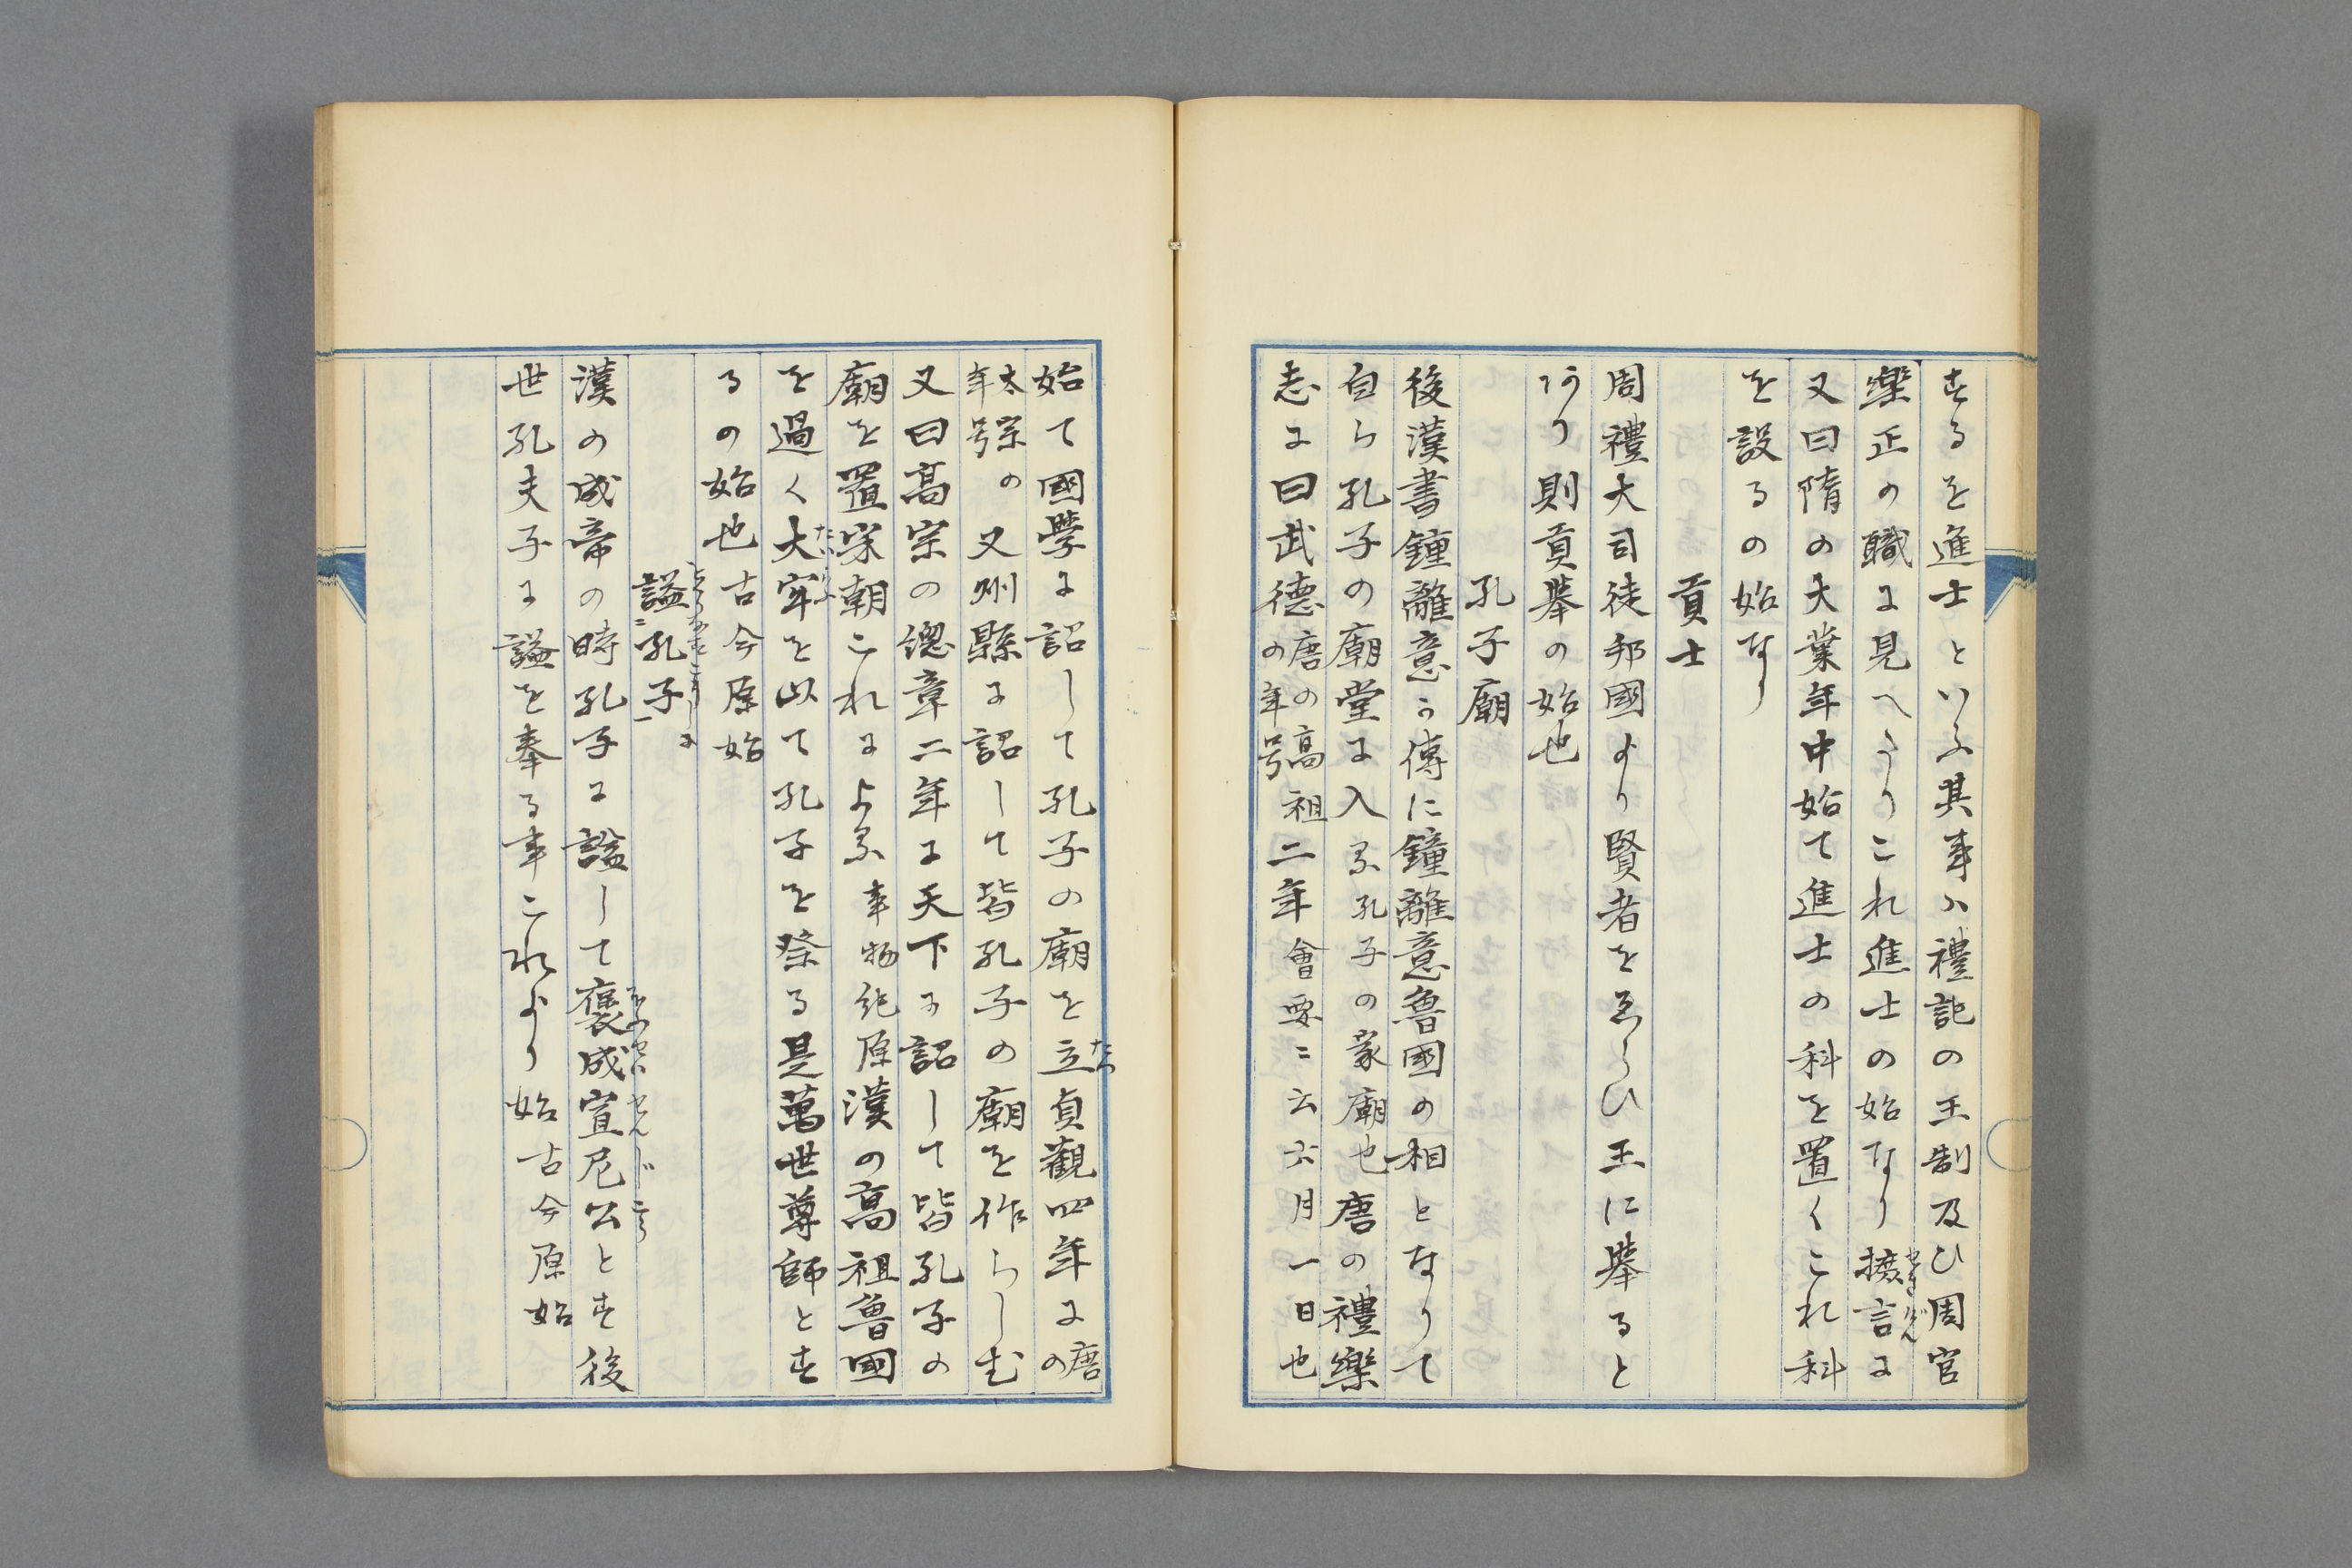 するを進士といふ其事ハ禮記の王制及ひ周官
樂正の職に見へたりこれ進士の始なり摭言に
又曰隋の大業年中始て進士の科を置くこれ科
を設るの始なり
貢士
周禮大司徒邦國より賢者をゑらひ王に擧ると
あり則貢擧の始也
孔子廟
後漢書鍾離意か傳に鐘離意魯國の相となりて
自ら孔子の廟堂に入る孔子の家廟也唐の禮樂
志に曰武德唐の高祖の年号二年會要ニ云六月一日也
始て國學に詔して孔子の廟を立貞觀四年に唐の
太宗の年号又州縣に詔して皆孔子の廟を作らしむ
又曰高宗の總章二年に天下に詔して皆孔子の
廟を置宋朝これによる事物紀原漢の高祖魯國
を過く大牢を以て孔子を祭る是萬世尊師とす
るの始也古今原始
諡ニ孔子一
漢の成帝の時孔子に諡して褒成宣尼公とす後
世孔夫子に諡を奉る事これより始古今原始